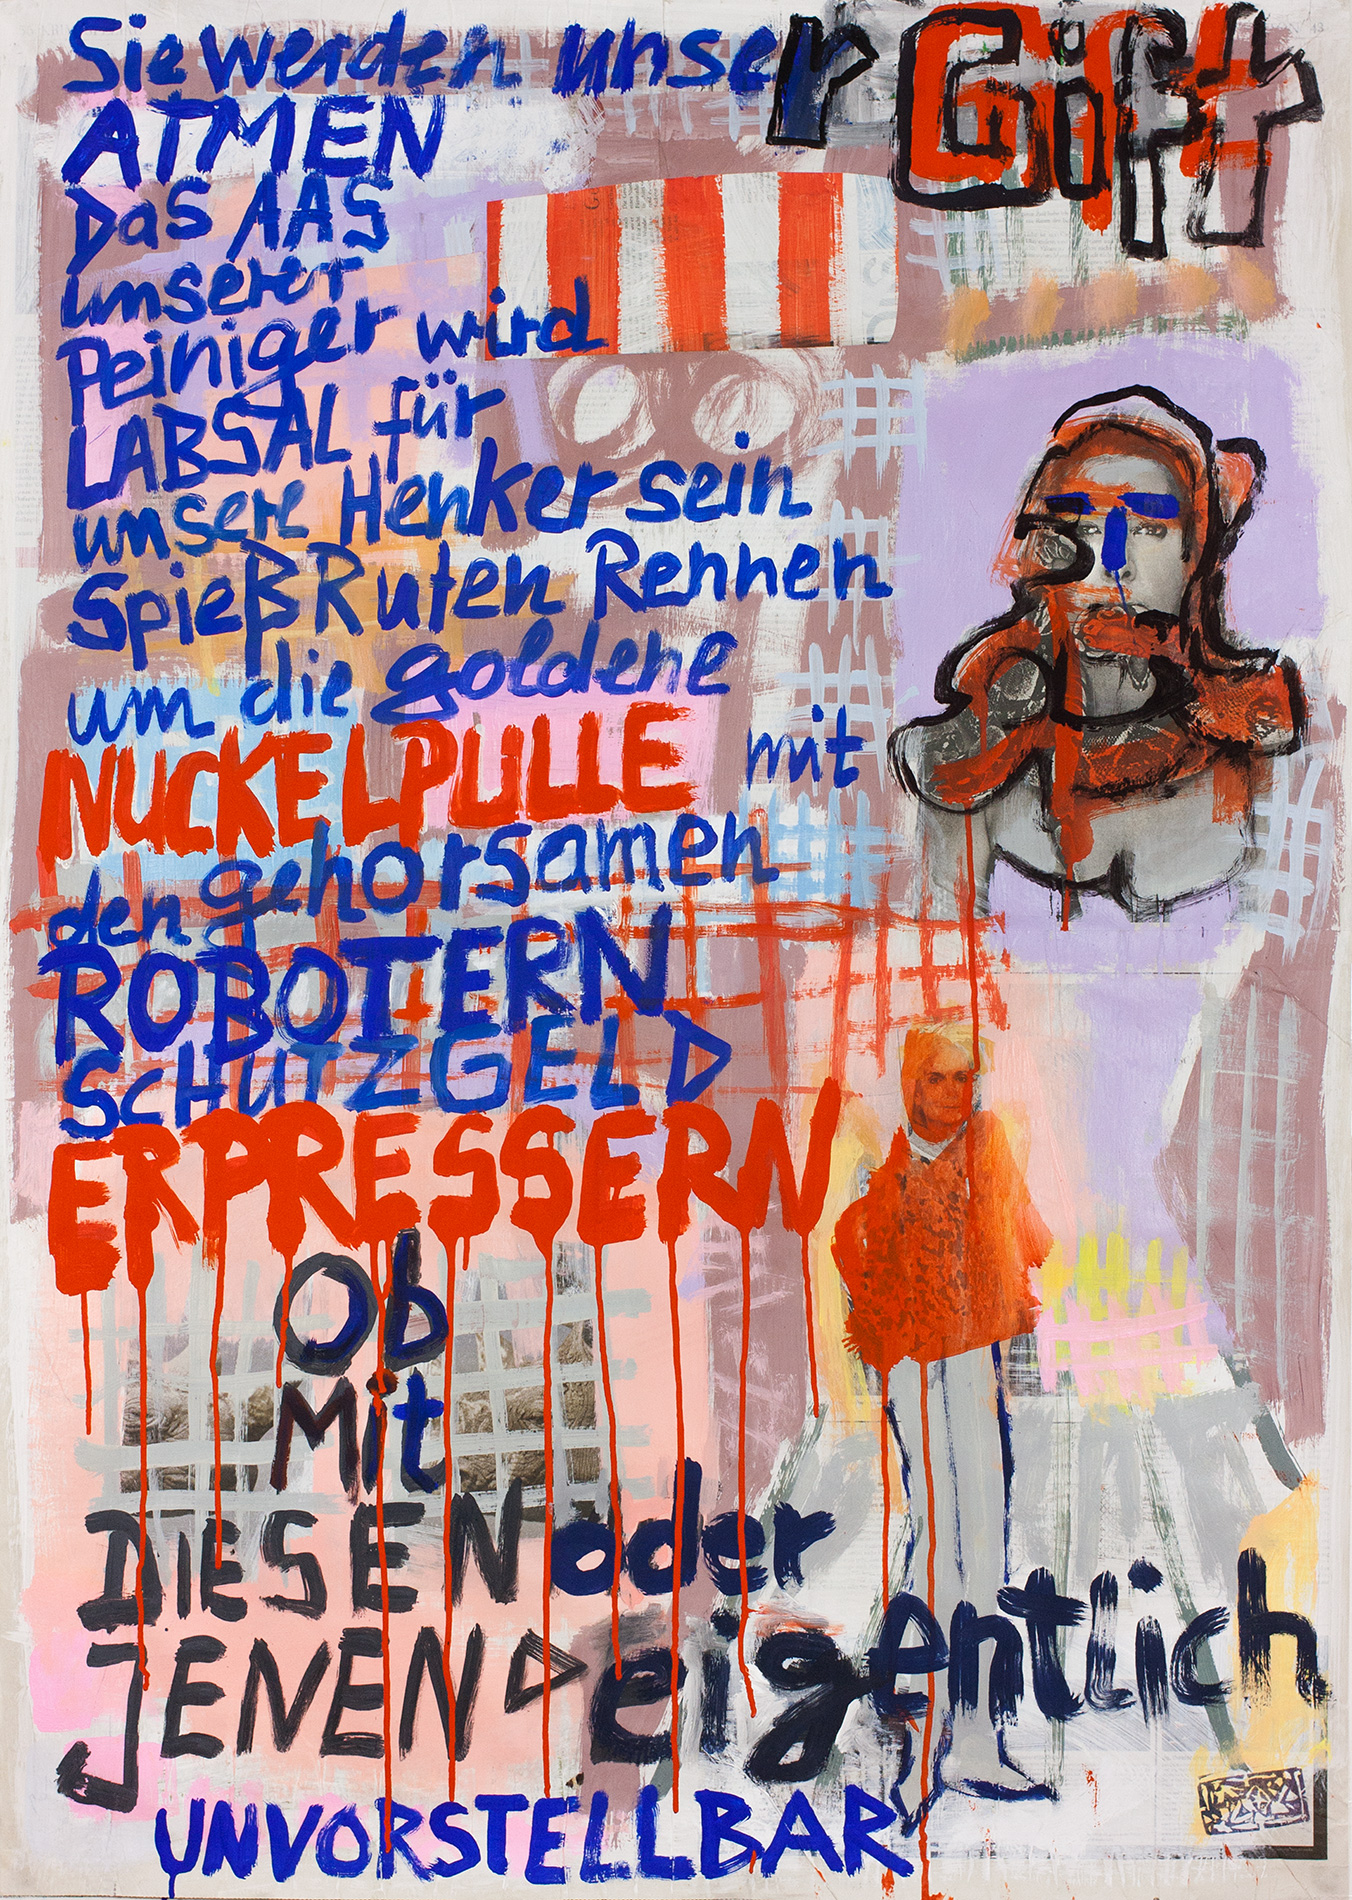 Sie werden unser Gift
ATMEN
Das AAS
unserer
Peiniger wird
LABSAL für
unsere Henker sein
SpießRuten Rennen
um die goldene
NUCKELPULLE mit
den gehorsamen
ROBOTERN
SCHUTZGELD
ERPRESSERN
Ob
Mit
DIESEN oder
JENEN eigentlich
UNVORSTELLBAR